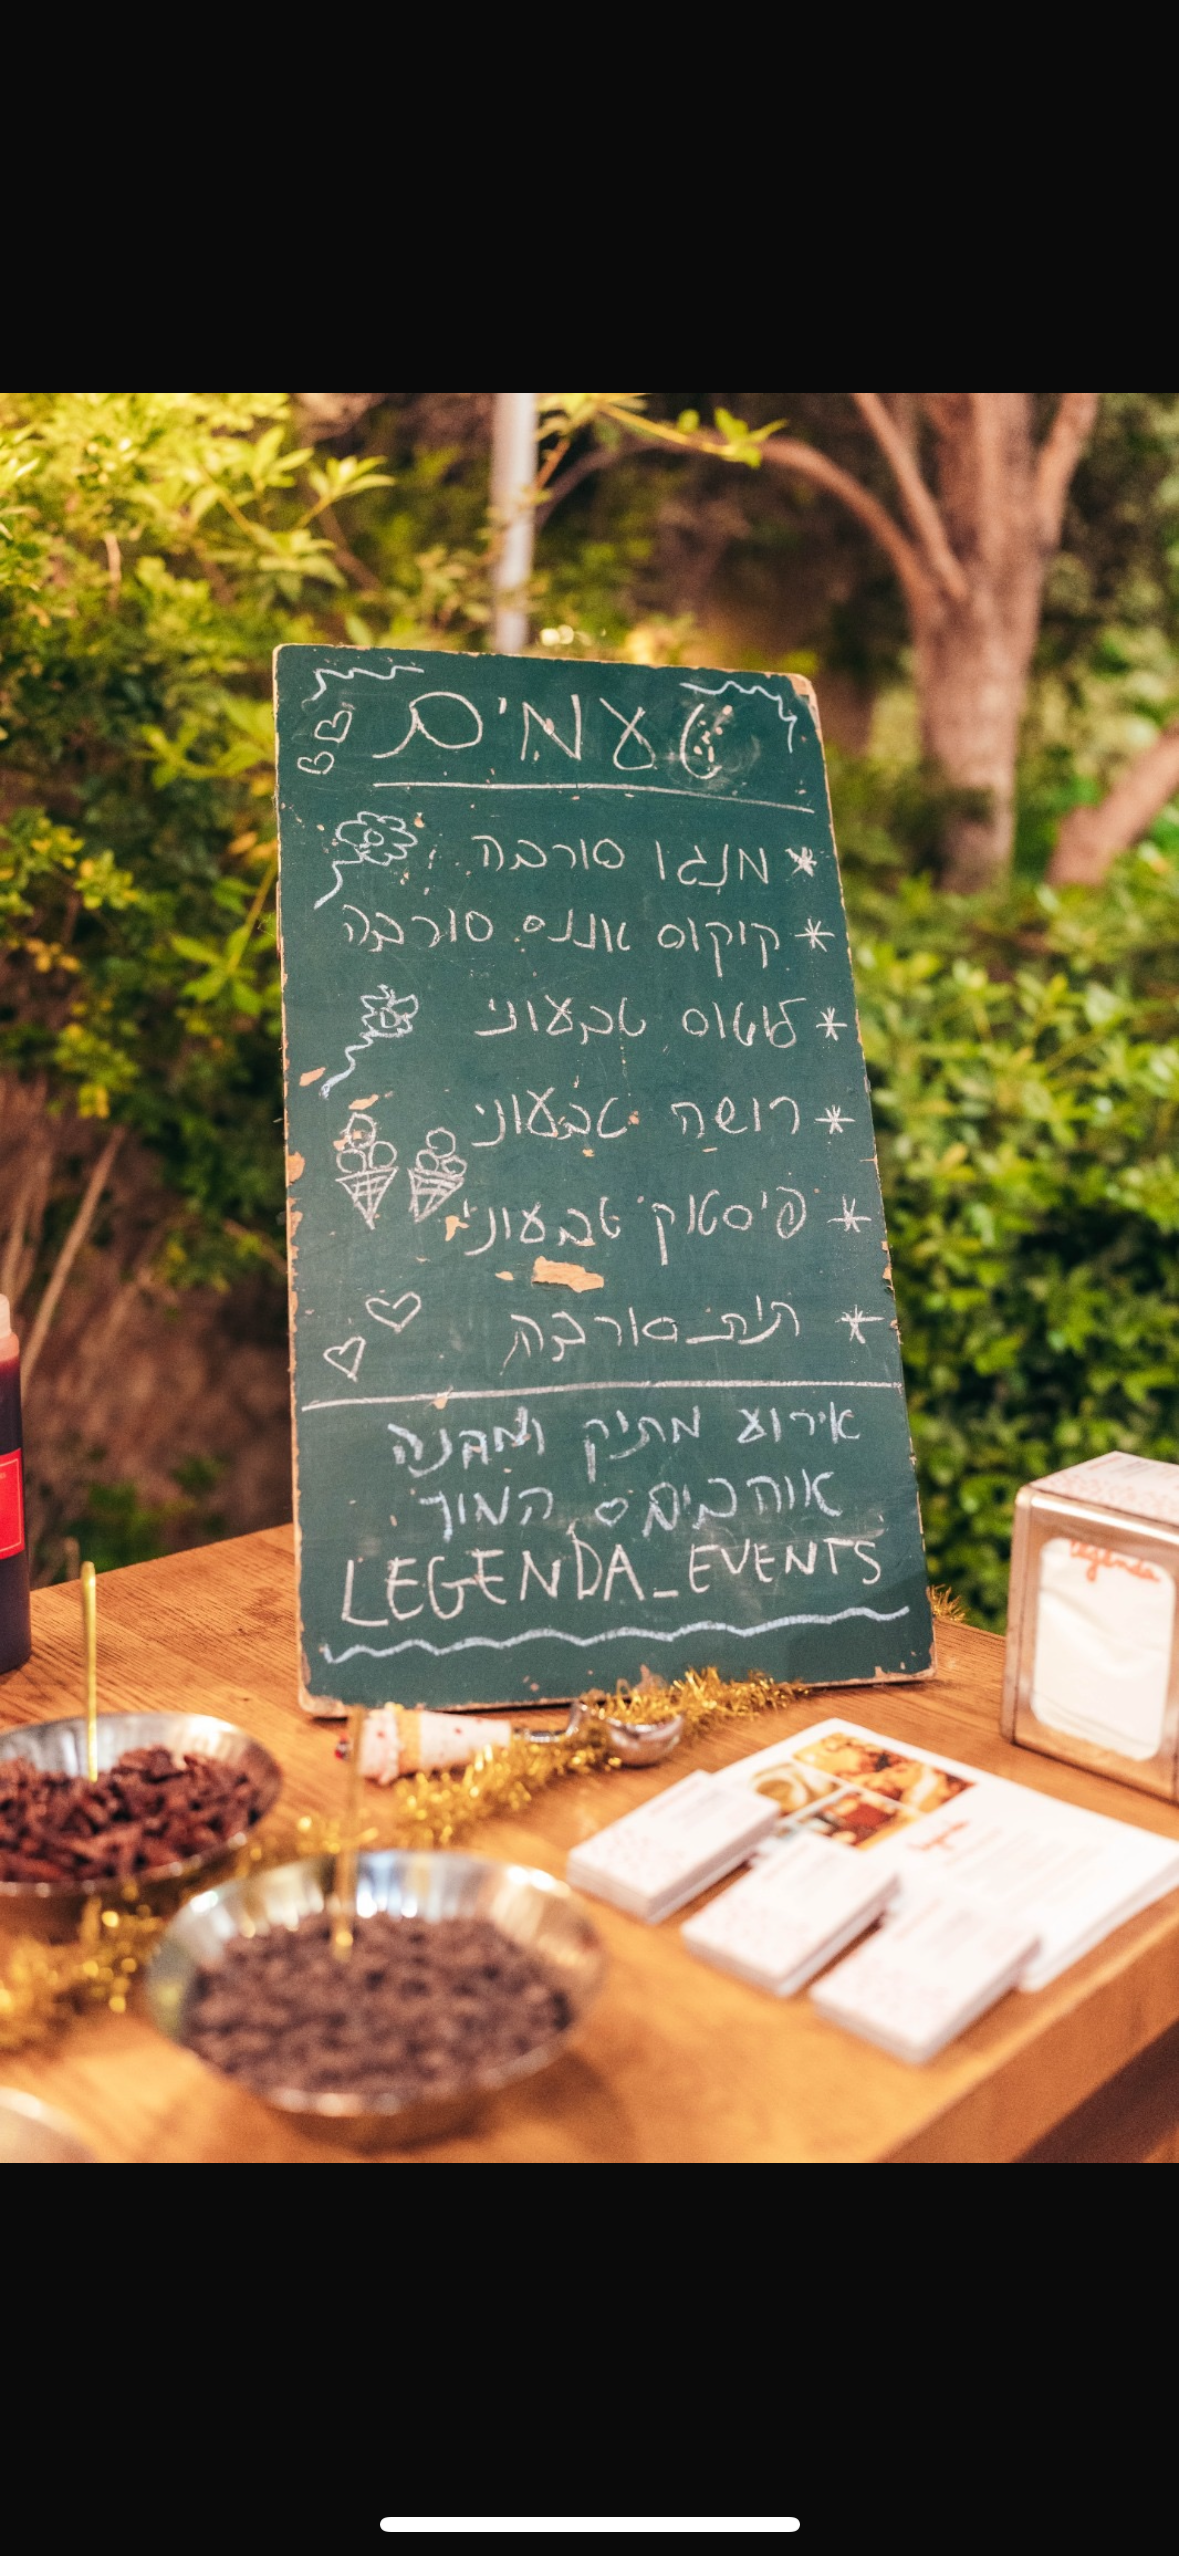 טעמים
* מנגו סורבה
* קוקוס אננס סורבה
* לוטוס טבעוני
* רושה טבעוני
* פיסטוק טבעוני
* תות סורבה
אירוע מתוק ומהנה
אוהבים המון
LEGENDA_EVENTS
legenda